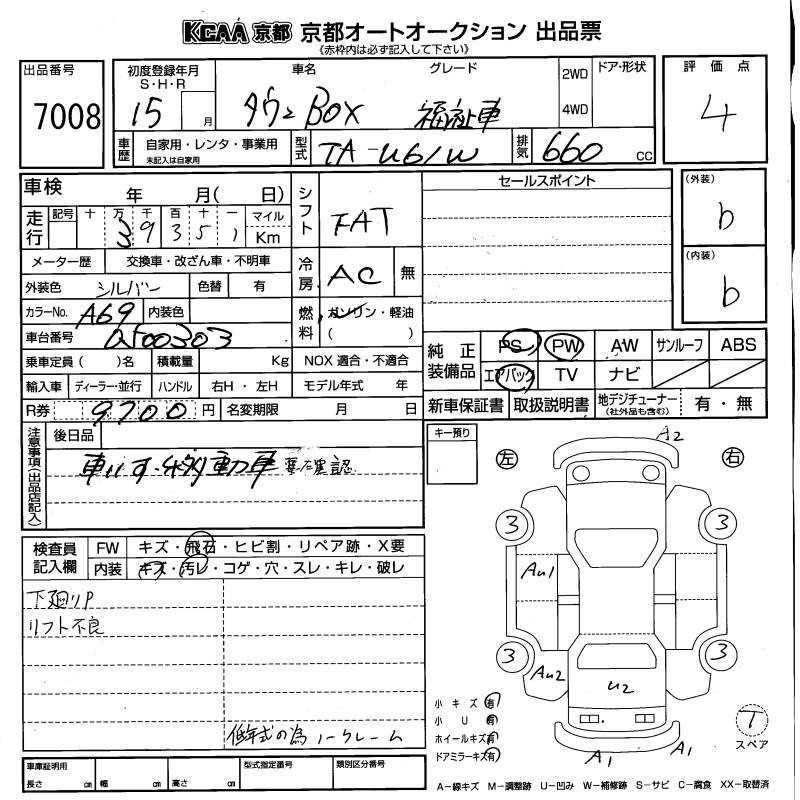 KCAA 京都 京都オートオークション 出品票
《赤枠内は必ず記入して下さい》
出品番号 7008
初度登録年月 S・H・R 15 月
車名 タウンBOX
グレード 福祉車
2WD 4WD
ドア・形状
評価点 4
車歴 自家用・レンタ・事業用 未記入は自家用
型式 TA-U61W
排気 660 cc
車検 年 月( 日)
シフト FAT
セールスポイント
(外装) b
走行 記号 十 万 千 百 十 一 マイル
39351 Km
メーター歴 交換車・改ざん車・不明車
冷房 AC 無
(内装) b
外装色 シルバー 色替 有
カラーNo. A69 内装色
燃料 ガソリン・軽油 ( )
車台番号 0500303
純正装備品 PS PW AW サンルーフ ABS
エアバッグ TV ナビ
乗車定員 ( )名 積載量 Kg NOX 適合・不適合
輸入車 ディーラー・並行 ハンドル 右H・左H モデル年式 年
新車保証書 取扱説明書 地デジチューナー (社外品も含む) 有・無
R券 9700 円 名変期限 月 日
注意事項(出品店記入)
後日品
車いす移動車 要確認
キー預り
左 右
A2
3 3
Au1
3 3
Au2
U2
A1 A1
検査員記入欄 FW キズ・飛石・ヒビ割・リペア跡・X要
内装 キズ・汚レ・コゲ・穴・スレ・キレ・破レ
下廻りP
リフト不良
低年式の為ノークレーム
小キズ 有
小U 有
ホイールキズ 有
ドアミラーキズ 有
T
スペア
車庫証明用 長さ cm 幅 cm 高さ cm
型式指定番号
類別区分番号
A―線キズ M―調整跡 U―凹み W―補修跡 S―サビ C―腐食 XX―取替済